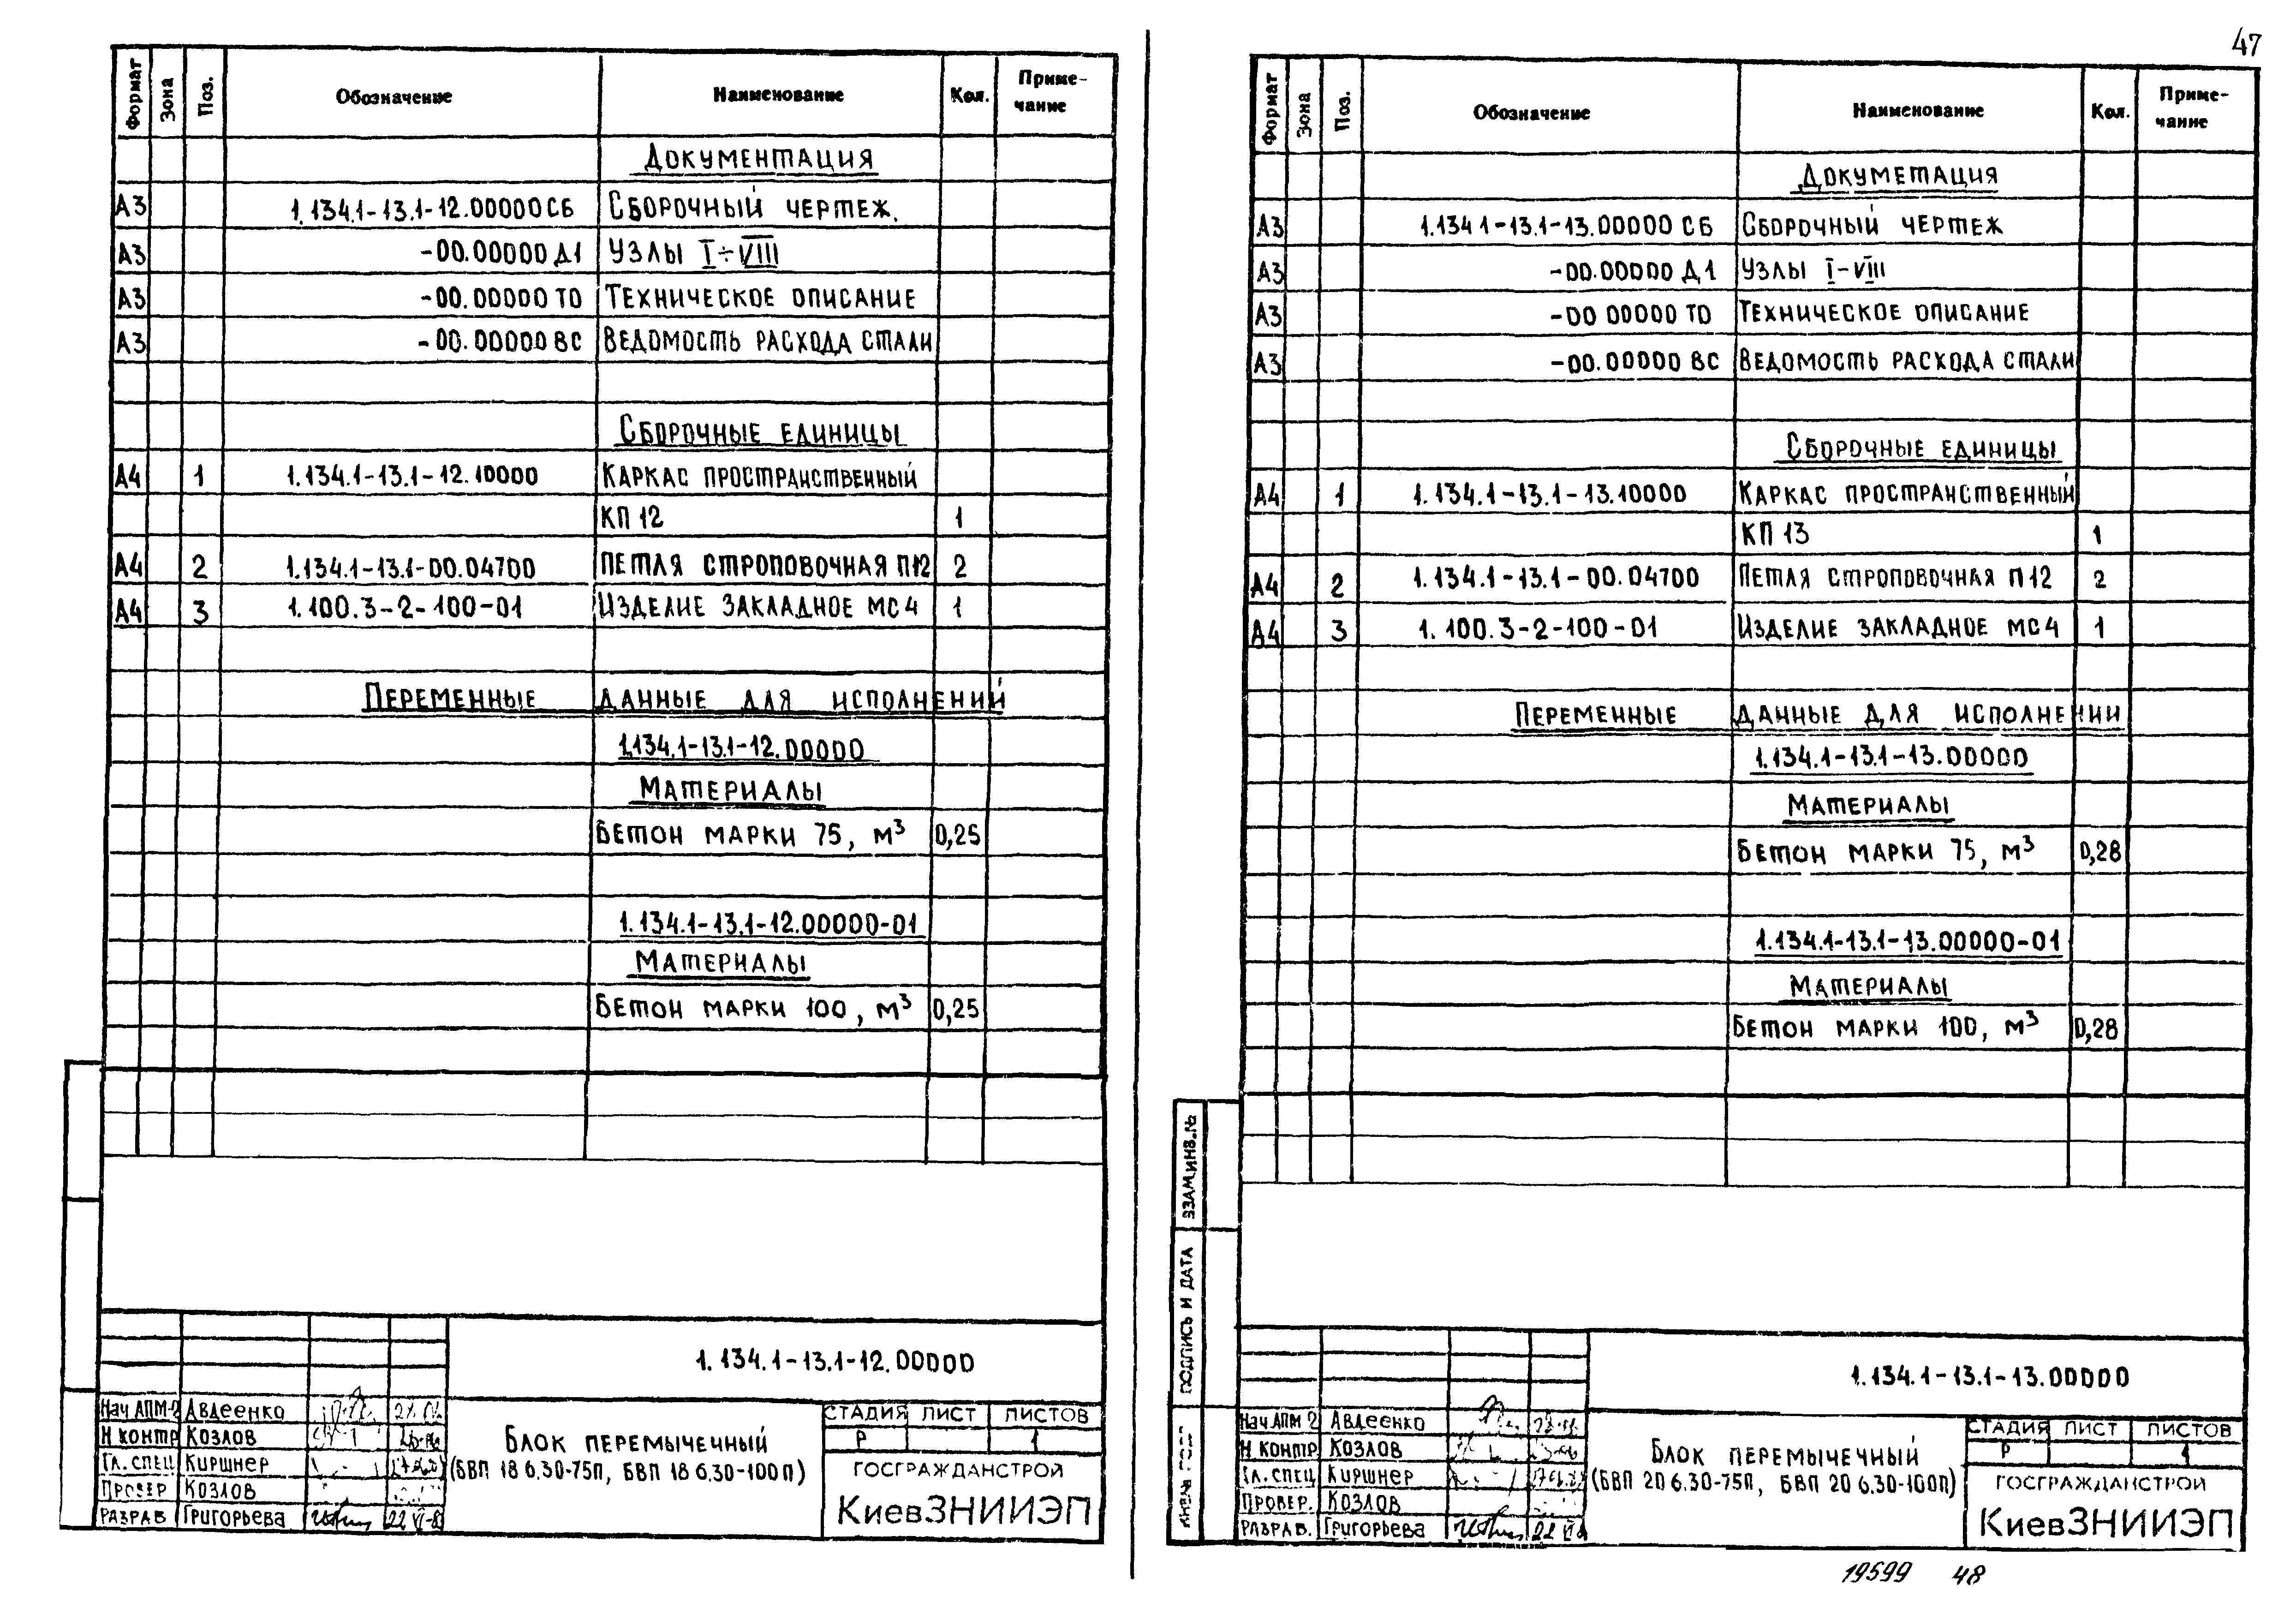 47
Формат Зона Поз. Обозначение Наименование Кол. Приме-
чание
Документация
А3 1.134.1-13.1-12.00000СБ Сборочный чертеж.
А3 -00.00000Д1 Узлы I÷VIII
А3 -00.00000ТО Техническое описание
А3 -00.00000ВС Ведомость расхода стали
Сборочные единицы
А4 1 1.134.1-13.1-12.10000 Каркас пространственный
КП 12 1
А4 2 1.134.1-13.1-00.04700 Петля строповочная П12 2
А4 3 1.100.3-2-100-01 Изделие закладное МС4 1
Переменные данные для исполнений
1.134.1-13.1-12.00000
Материалы
Бетон марки 75, м³ 0,25
1.134.1-13.1-12.00000-01
Материалы
Бетон марки 100, м³ 0,25
1.134.1-13.1-12.00000
Нач АПМ-2 Авдеенко
Н контр Козлов
Гл. спец Киршнер
Провер Козлов
Разраб Григорьева
Блок перемычечный
(БВП 18 6.30-75П, БВП 18 6.30-100П)
Стадия Лист Листов
Р 1
ГОСГРАЖДАНСТРОЙ
КиевЗНИИЭП
Формат Зона Поз. Обозначение Наименование Кол. Приме-
чание
Докуметация
А3 1.134 1-13.1-13.00000 СБ Сборочный чертеж
А3 -00.00000 Д1 Узлы I-VIII
А3 -00 00000 ТО Техническое описание
А3 -00.00000 ВС Ведомость расхода стали
Сборочные единицы
А4 1 1.134.1-13.1-13.10000 Каркас пространственный
КП 13 1
А4 2 1.134.1-13.1-00.04700 Петля строповочная П12 2
А4 3 1.100.3-2-100-01 Изделие закладное МС4 1
Переменные данные для исполнении
1.134.1-13.1-13.00000
Материалы
Бетон марки 75, м³ 0,28
1.134.1-13.1-13.00000-01
Материалы
Бетон марки 100, м³ 0,28
Взам.инв.№
Подпись и дата
1.134.1-13.1-13.00000
Нач АПМ 2 Авдеенко
Н контр Козлов
Гл. спец Киршнер
Провер. Козлов
Разраб. Григорьева
Блок перемычечный
(БВП 20 6.30-75П, БВП 20 6.30-100П)
Стадия Лист Листов
Р 1
ГОСГРАЖДАНСТРОЙ
КиевЗНИИЭП
19599 48